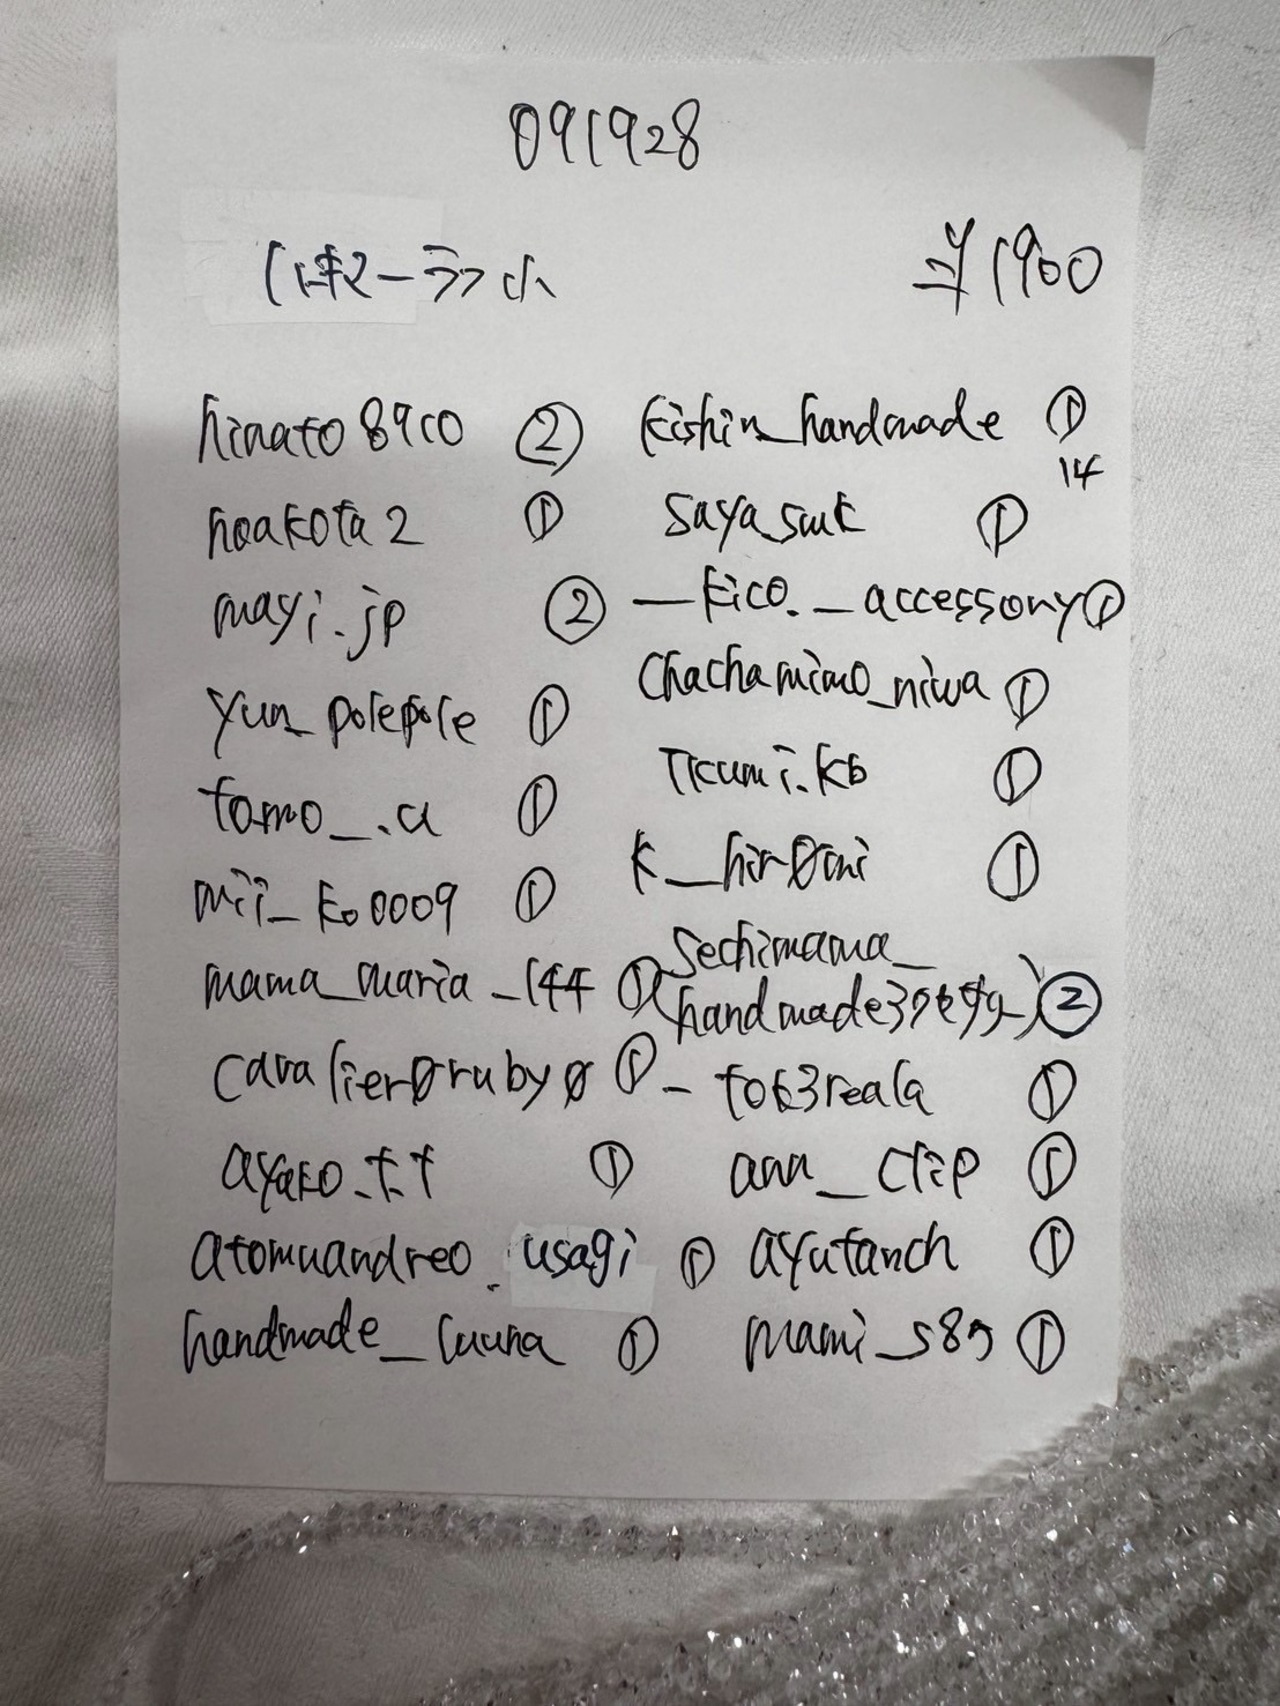 091928
¥1900
hinato8910 ②
hoakota2 ①
mayi.jp ②
yun_polepole ①
tomo__.a ①
mii_ko0009 ①
mama_maria_144 ①
cavalier0ruby0 ①
ayako.t.t ①
atomuandreo.usagi ①
handmade_luuna ①
kishin_handmade ①
14
saya_smk ①
_kico._accessory ①
chachamimo_niwa ①
①
k__hir0mi ①
sechimama_
②
_tok3reala ①
ann_clip ①
ayutanch ①
mami_s89 ①